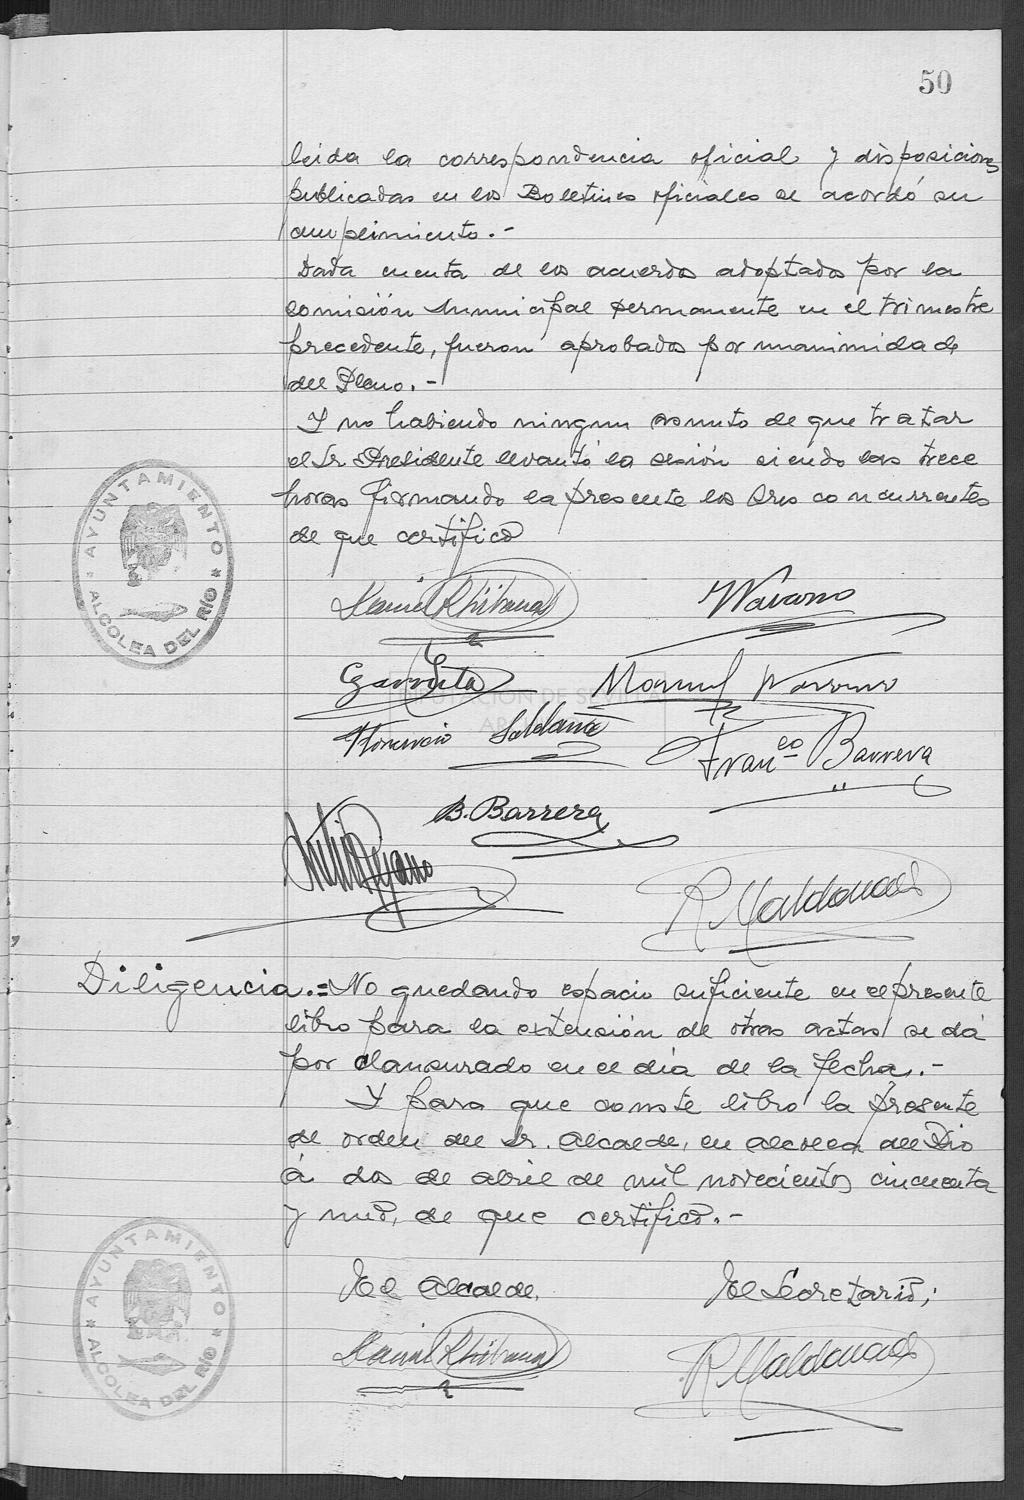 50
leida la correspondencia oficial y disposiciones
publicadas en los Boletines oficiales se acordó su
cumplimiento.-
Dada cuenta de los acuerdos adoptados por la
comisión Municipal permanente en el trimestre
precedente, fueron aprobados por unanimidad
del Pleno.-
Y no habiendo ningun asunto de que tratar
el Sr Presidente levantó la sesión siendo las trece
horas firmando la presente los Sres concurrentes
de que certifico
AYUNTAMIENTO
* ALCOLEA DEL RÍO *
Navarro
Manuel Navarro
DIPUTACIÓN DE SEVILLA
Florencio Saldaña
Franco Barrera
B. Barrera
R Maldonado
Diligencia.= No quedando espacio suficiente en el presente
libro para la extensión de otras actas se dá
por clausurado en el día de la fecha.-
Y para que conste libro la presente
de orden del Sr. Alcalde, en Alcolea del Rio
á dos de abril de mil novecientos cincuenta
y uno, de que certifico.-
AYUNTAMIENTO
* ALCOLEA DEL RÍO *
El Alcalde,
El Secretario;
R Maldonado